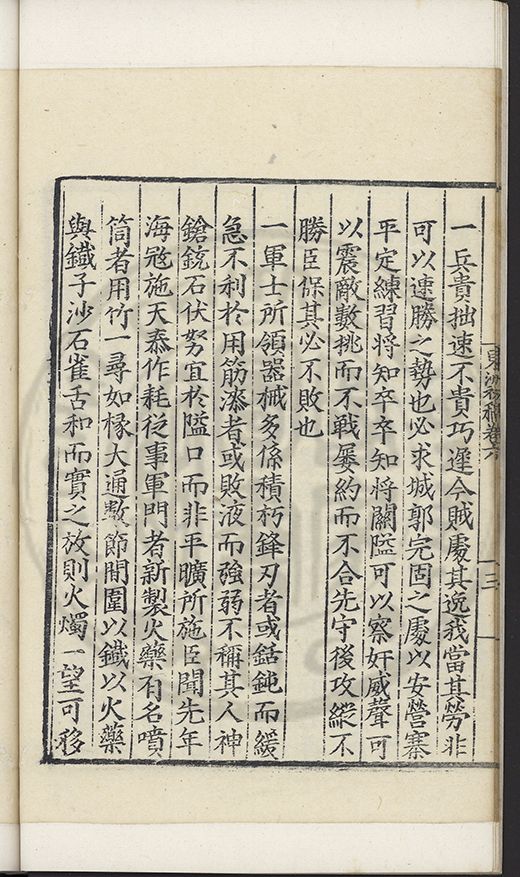 一兵貴拙速不貴巧遲今賊處其逸我當其勞非
可以速勝之勢也必求城郭完固之處以安營寨
平定練習將知卒卒知將關隘可以察奸威聲可
以震敵數挑而不戰屢約而不合先守後攻縱不
勝臣保其必不敗也
一軍士所領器械多係積朽鋒刃者或銛鈍而緩
急不利於用筋漆者或敗液而強弱不稱其人神
鎗銃石伏弩宜於隘口而非平曠所施臣聞先年
海寇施天泰作耗從事軍門者新製火藥有名噴
筒者用竹一尋如椽大通數節間圍以鐵以火藥
與鐵子沙石雀舌和而實之放則火燭一望可移
卷六
三